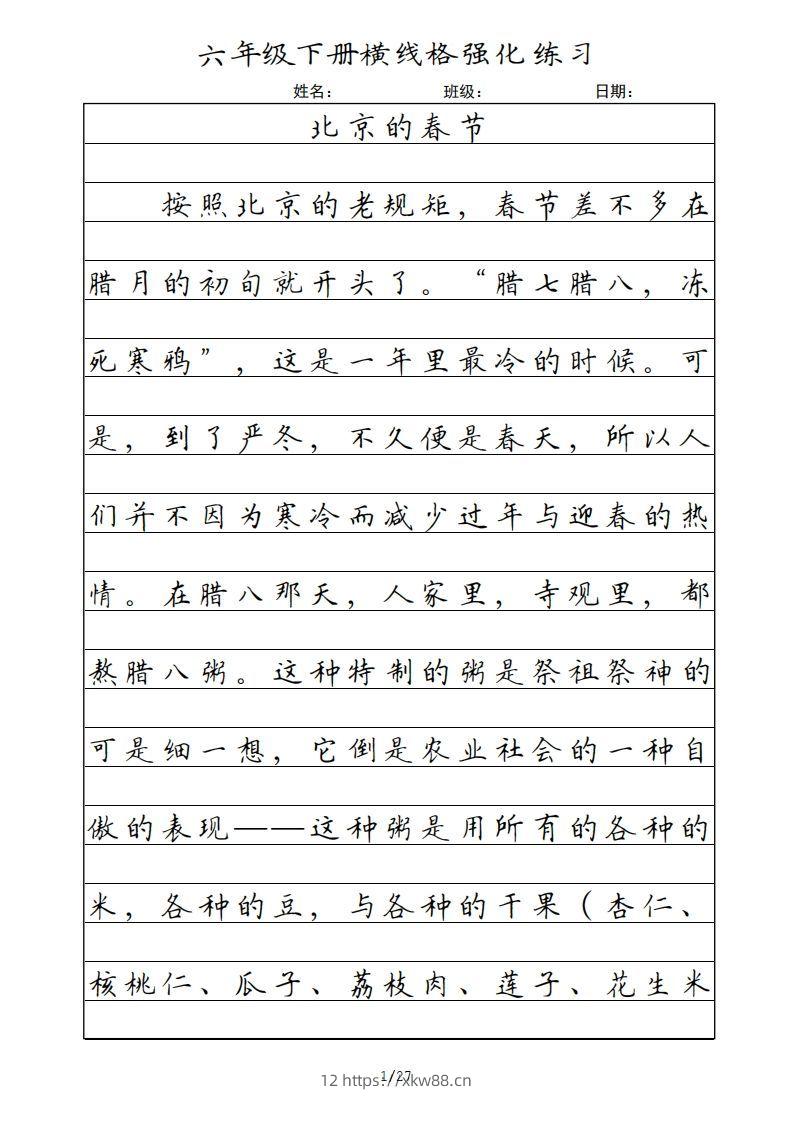 六年级下册横线格强化练习
姓名： 班级： 日期：
北京的春节
按照北京的老规矩，春节差不多在
腊月的初旬就开头了。“腊七腊八，冻
死寒鸦”，这是一年里最冷的时候。可
是，到了严冬，不久便是春天，所以人
们并不因为寒冷而减少过年与迎春的热
情。在腊八那天，人家里，寺观里，都
熬腊八粥。这种特制的粥是祭祖祭神的
可是细一想，它倒是农业社会的一种自
傲的表现——这种粥是用所有的各种的
米，各种的豆，与各种的干果（杏仁、
核桃仁、瓜子、荔枝肉、莲子、花生米
1/27
12 https://xkw88.cn